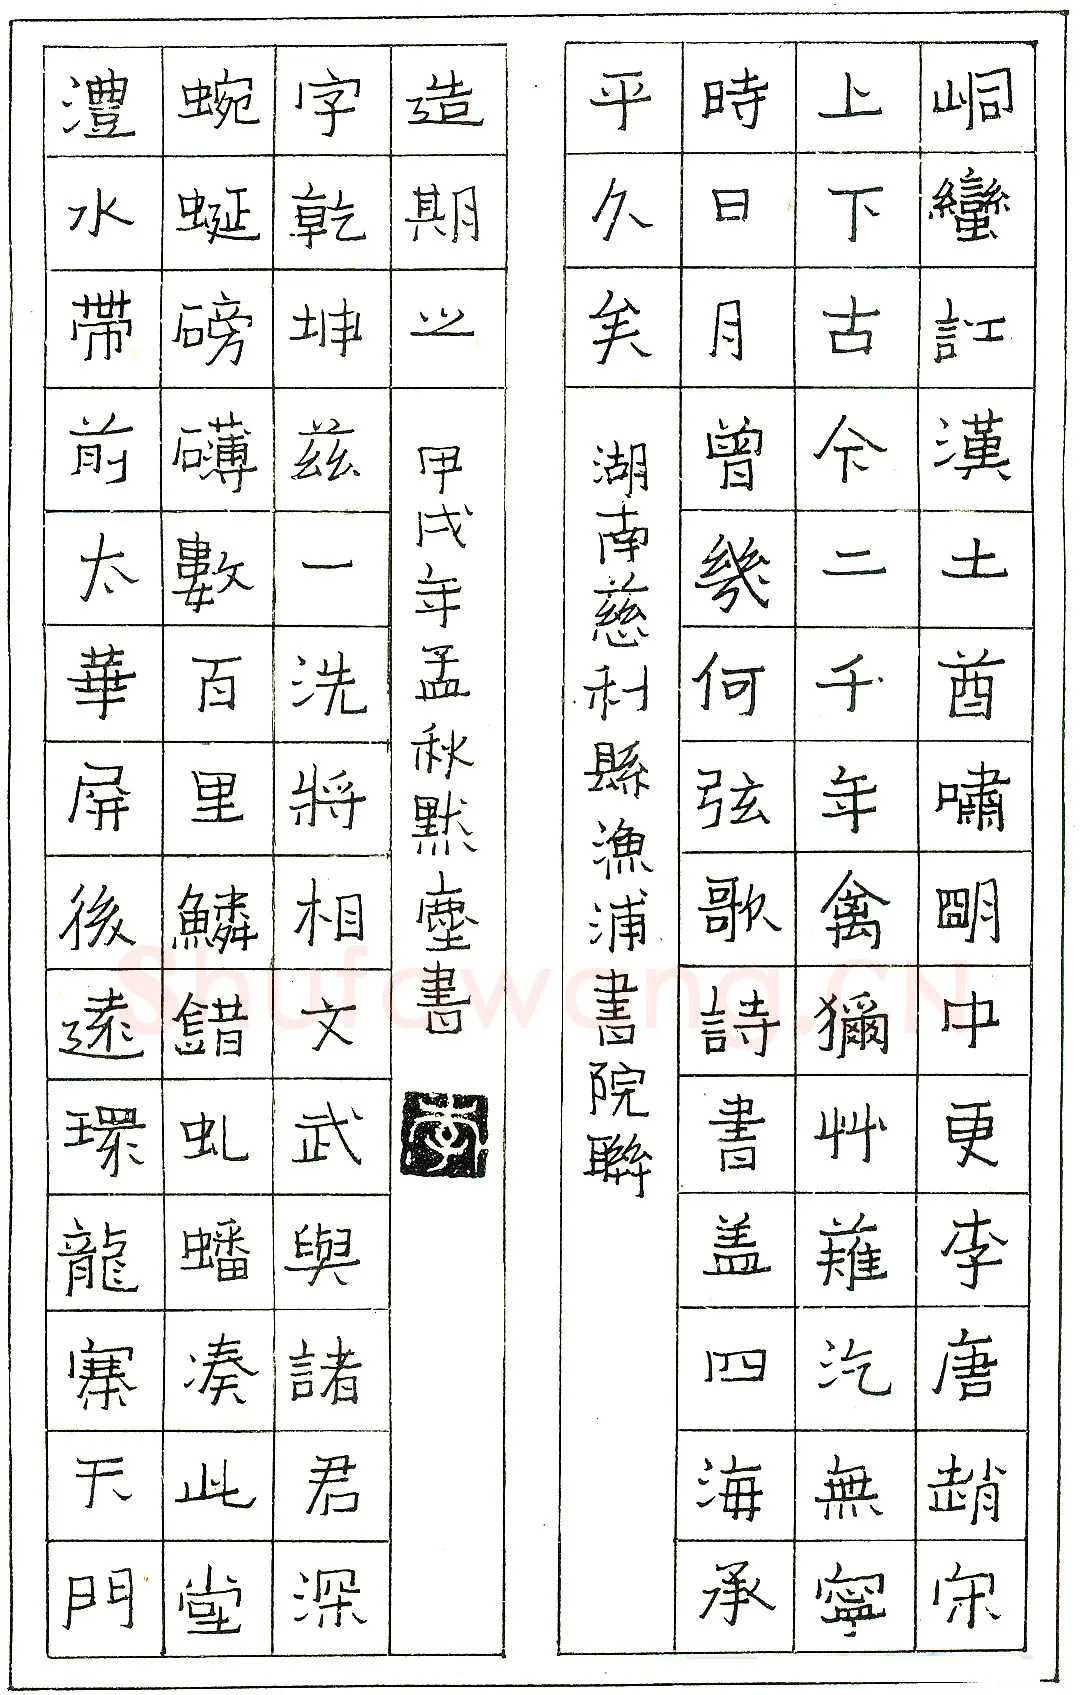 峒蠻訌漢土酋嘯明中更李唐趙宋
上下古今二千年禽獮艸薙汔無寧
時日月曾幾何弦歌詩書盖四海承
平久矣
湖南慈利縣漁浦書院聯
澧水帶前太華屏後遠環龍寨天門
蜿蜒磅礴數百里鱗錯虬蟠凑此堂
字乾坤茲一洗將相文武與諸君深
造期之
甲戌年孟秋默塵書
Shufawang.CN